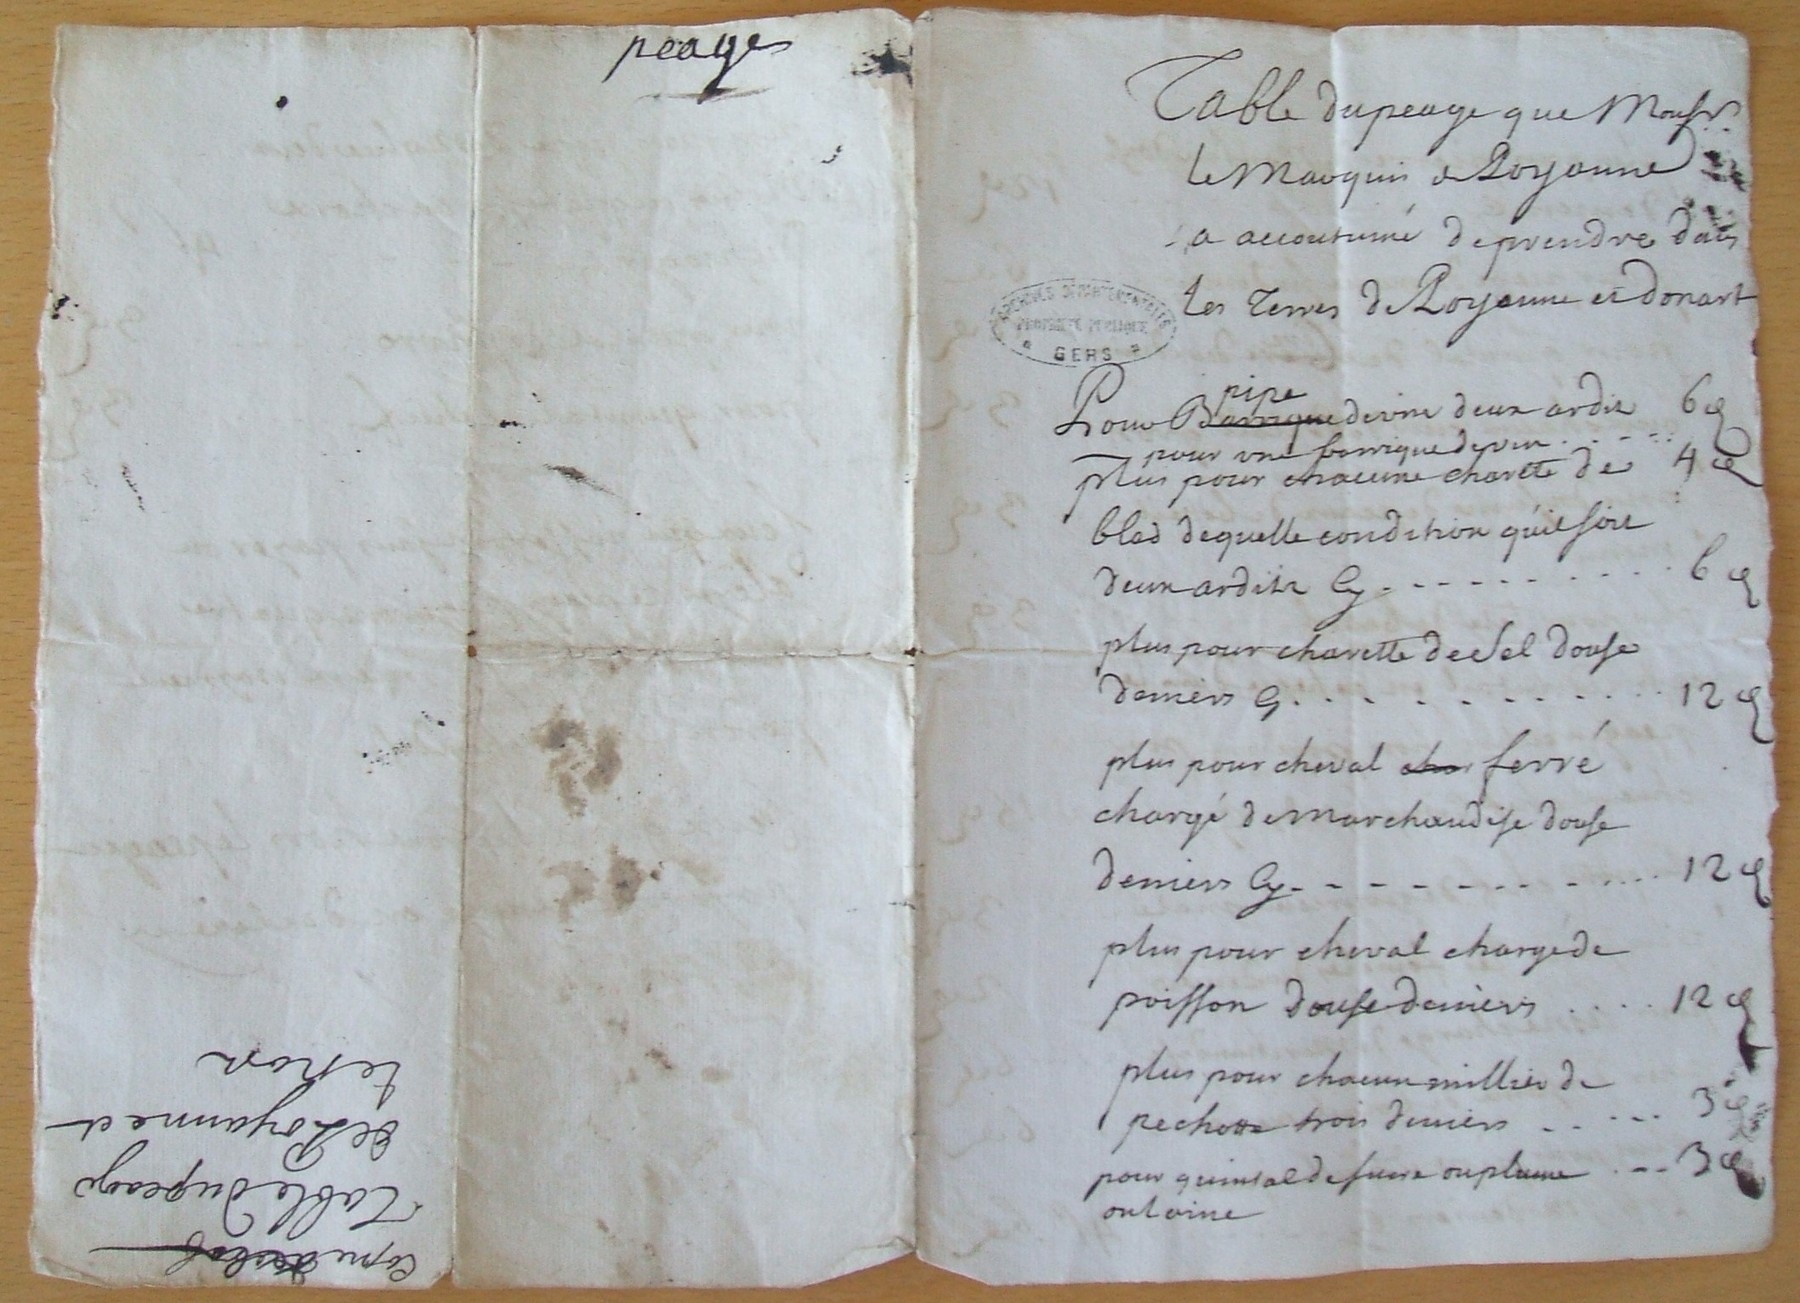 peages
Table du peage que Monsr.
le Marquis de Poyanne
a accoutumé de prendre dans
les Terres de Poyanne et donart
ARCHIVES DÉPARTEMENTALES
PROPRIÉTÉ PUBLIQUE
GERS
pipe
Pour Barrique de vin deux ardits 6 d
pour une barrique de vin . . . . . 4 d
plus pour chacune charette de
bled de quelle condition qu'il soit
deux ardits Cy . . . . . . . . . 6 d
plus pour charette de sel douse
deniers Cy . . . . . . . . . . 12 d
plus pour cheval char ferré
chargé de marchandise douse
deniers Cy . . . . . . . . . . 12 d
plus pour cheval chargé de
poisson douse deniers . . . . 12 d
plus pour chacun millier de
pechotte trois deniers . . . . . 3 d
pour quintal de sucre ou plume . . . 3 d
ou laine
Copie
Table du peage
de Poyanne et
tethon